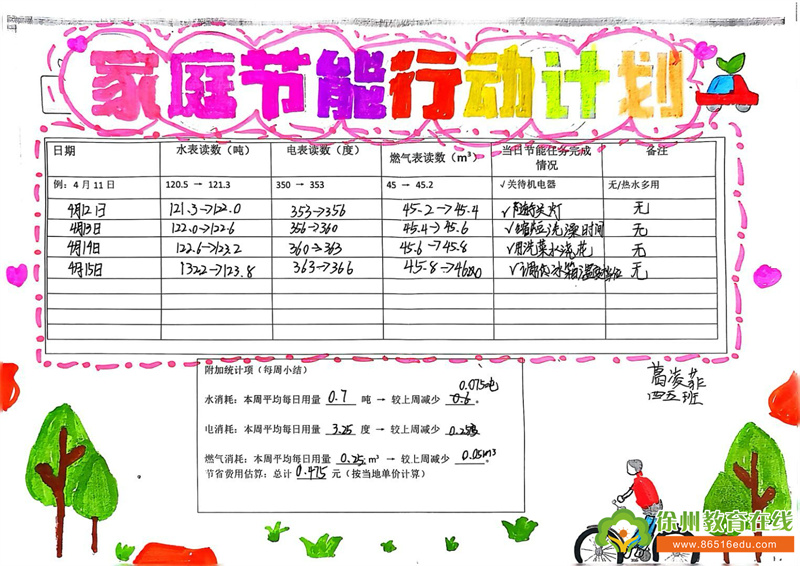 家庭节能行动计划
日期 水表读数（吨） 电表读数（度） 燃气表读数（m³） 当日节能任务完成情况 备注
例：4 月 11 日 120.5 → 121.3 350 → 353 45 → 45.2 √关待机电器 无/热水多用
4月12日 121.3→122.0 353→356 45.2→45.4 √随手关灯 无
4月13日 122.0→122.6 356→360 45.4→45.6 √缩短洗澡时间 无
4月14日 122.6→123.2 360→363 45.6→45.8 √用洗菜水浇花 无
4月15日 →123.8 363→366 45.8→ √调低冰箱温度 无
附加统计项（每周小结）
0.075吨
水消耗：本周平均每日用量 0.7 吨 → 较上周减少 0.6 。
电消耗：本周平均每日用量 3.25 度 → 较上周减少 0.25度
燃气消耗：本周平均每日用量 0.25 m³ → 较上周减少 0.05m³
节省费用估算：总计 0.475 元（按当地单价计算）
葛凌菲
四五班
徐州教育在线
www.86516edu.com